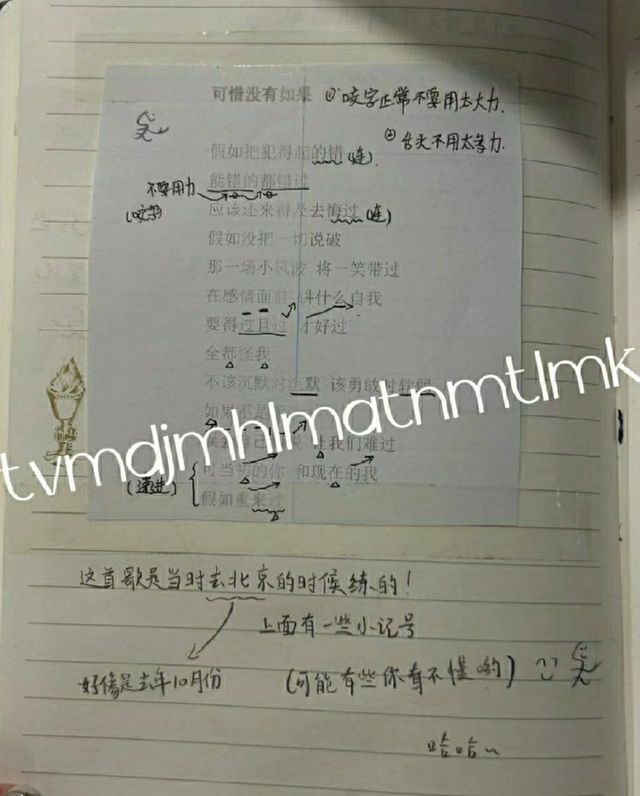 可惜没有如果 ① 咬字正常不要用太大力.
② 舌头不用太多力.
假如把犯得起的错 (连).
不要用力 能错的都错过
(咬字) 应该还来得及去悔过 (连)
假如没把一切说破
那一场小风波 将一笑带过
在感情面前 讲什么自我
要得过且过 才好过
全都怪我
不该沉默时沉默 该勇敢时软弱
如果不是
让我们难过
可当初的你 和现在的我
(递进) 假如重来过
tvmdjmhlmatnmtlmk
这首歌是当时去北京的时候练的!
上面有一些小记号
好像是去年10月份 (可能有些你看不懂的)
哈哈~